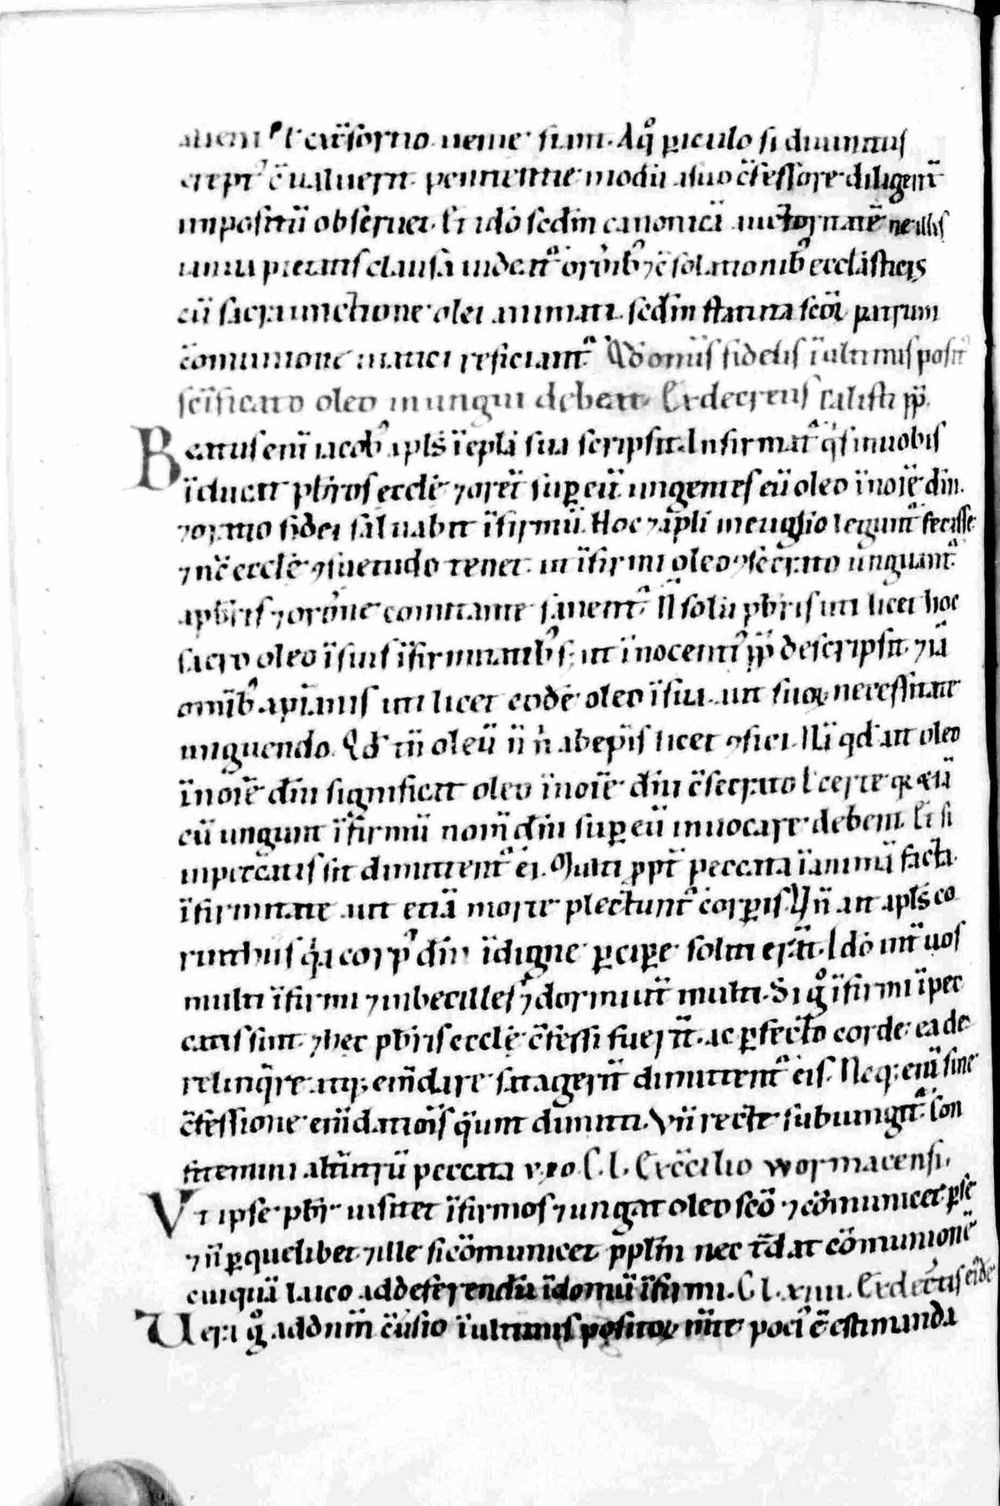 aliení l c̄sortio uenie sum. Aq̊ piculo si diuinitus
erepti c̄ualuerit. penitentie modū asuo c̄fessore diligent̄
impositū obseruet. Et idō scdm canonicā auctoritatē ne illis
ianua pietatis clausa uideat᷑ orōib; ⁊c̄solationib; eccl̄asticis
cū sacra unctione olei animati. scdm statuta sc̄oꝝ patrum
cōmunione uiatici reficiant᷑. Qd̄ om̄is fidelis ī ultimis posit᷒
sc̄ificato oleo inungui debeat. Ex decretis Calisti pp̄.
Beatus eni iacob; apl̄s ī epl̄a sua scripsit. Infirmat᷑ q̄s inuobis
īducat pbr̄os eccl̄e ⁊oret̄ sup eū. ungentes eū oleo ī noīe dn̄i.
⁊oratio fidei saluabit īfirmū. Hoc ⁊apl̄i ineuglīo legunt᷑ fecisse
⁊nc̄ eccl̄e ꝯsuetudo tenet. ut īfirmi oleo ꝯsecrato unguant᷑
apbr̄is ⁊orōne comitante sanent᷑. Ñ solū pbr̄is uti licet hoc
sacro oleo īsuis īfirmitatib; s; ut innocenti᷒ pp̄ descripsit. ⁊iā
om̄ib; xpianis uti licet eodē oleo īsua. aut suoꝝ necessitate
unguendo. Qd̄ tn̄ oleū ñ ñ abepīs licet ꝯfici. Nā qd̄ ait oleo
ī noīe dn̄i significat oleo īnoīe dn̄i c̄secrato l certe qꝛ etiā
cū ungunt īfirmū nom̄ dn̄i sup eū inuocare debent. Et si
inpeccatis sit dimittent᷑ ei. Multi ppt̄ peccata ī anima facta
īfirmitate aut etiā morte plectunt᷑ corpis. Vn̄ ait apl̄s co
rinthiis q̄a corp᷒ dn̄i īdigne pcipe soliti erāt. Idō int̄ uos
multi īfirmi ⁊imbecilles ⁊dormiunt multi. Si g̊ īfirmi īpec
catis sunt. ⁊hec pbr̄is eccl̄e c̄fessi fuerīt. ac pfecto corde ea de
relinq̄re atq; em̄dare satagerīt dimittent᷑ eis. Neq; enī sine
c̄fessione em̄dationis q̄unt dimitti. Vn̄ recte subiungit᷑. Con
fitemini alt̄utrū peccata v̄ro. C. l. Ex c̄cilio wormacensi.
Vt ipse pbr̄ uisitet īfirmos ⁊ungat oleo sc̄o ⁊cōmunicet p se
⁊ñ p quelibet. ⁊ille si cōmunicet ppl̄m nec t̄dat cōmunionē
cuiquā laico addeferendū īdomū īfirmi. C. l. xiiii. Ex decretis eiꝰdē
Vera g̊ addn̄m c̄uersio ī ultimis positoꝝ m̄te poci᷒ ē estimanda